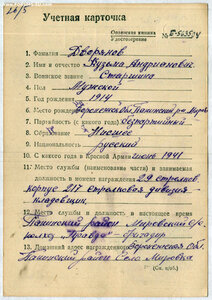 26/5
Учетная карточка
Орденская книжка
Удостоверение
№
1. Фамилия Дворянов
2. Имя и отчество Кузьма Андрианович
3. Воинское звание Старшина
4. Пол Мужской
5. Год рождения 1914
Воронежская Обл. Панинский р-н
7. Партийность (с какого года) беспартийный
8. Образование Низшее
9. Национальность русский
10. С какого года в Красной Армии июнь 1941
11. Место службы (наименование части) и занимаемая
должность в момент награждения 29 стрелков.
корпус 217 стрелковая дивизия -
кладовщик.
12. Место службы и должность в настоящее время
Панинский район
13. Домашний адрес награжденного Воронежская Обл.
Панинский район Село Мировка
(См. н/об.)